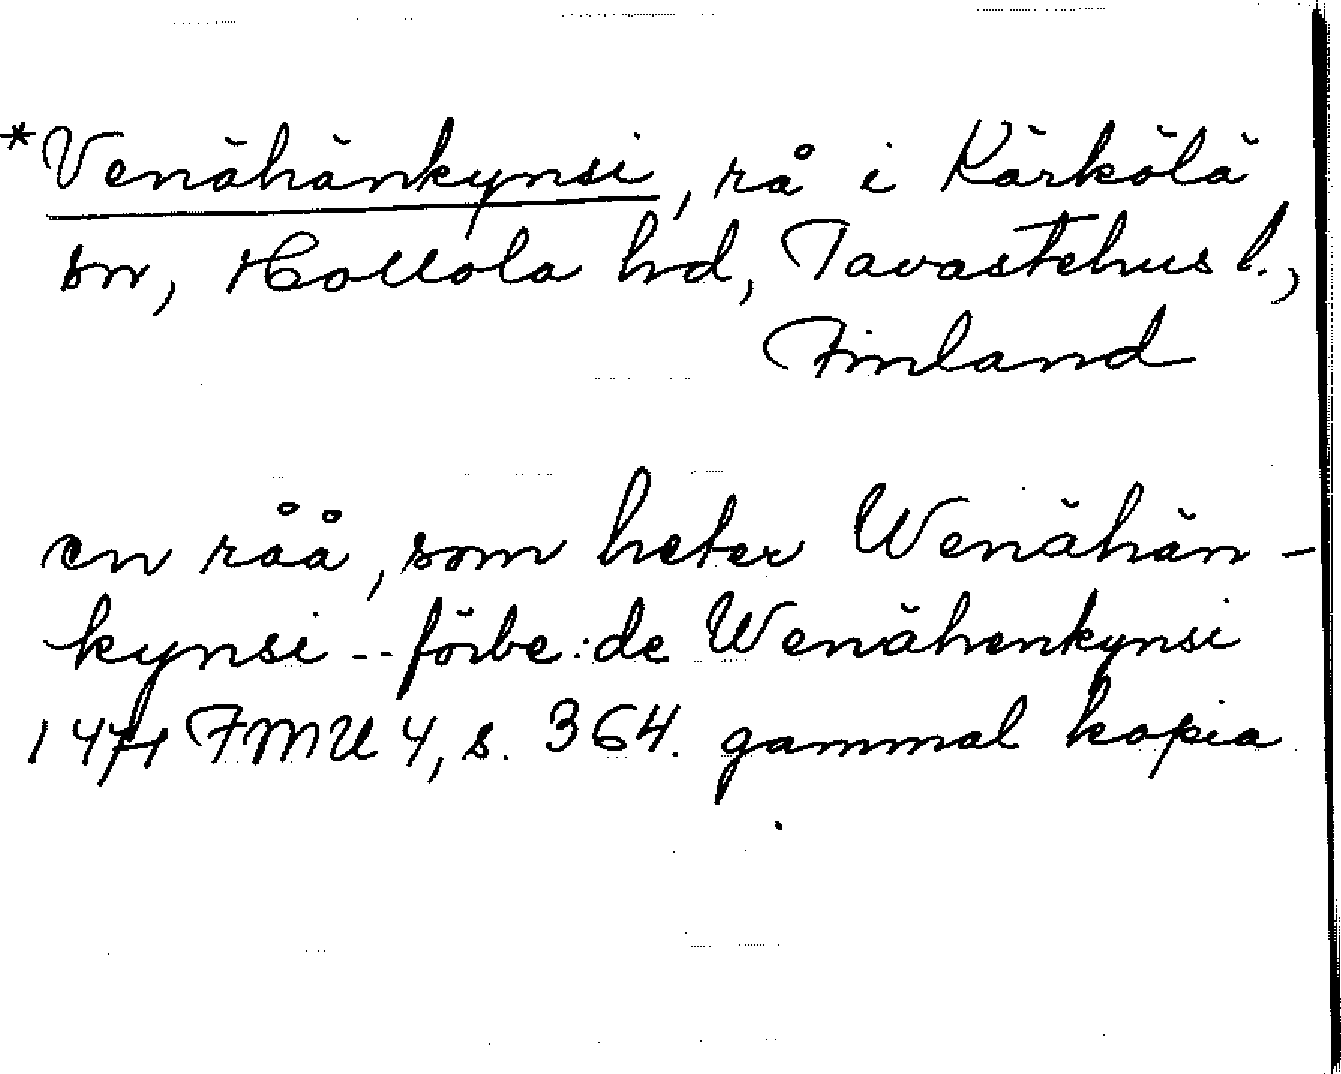 *Venähänkynsi, rå i Kärkölä
sn, Hollola hd, Tavastehus l.,
Finland
en råå, som heter Wenähän-
kynsi -- förbe:de Wenähenkynsi
1471 FMU 4, s. 364. gammal kopia